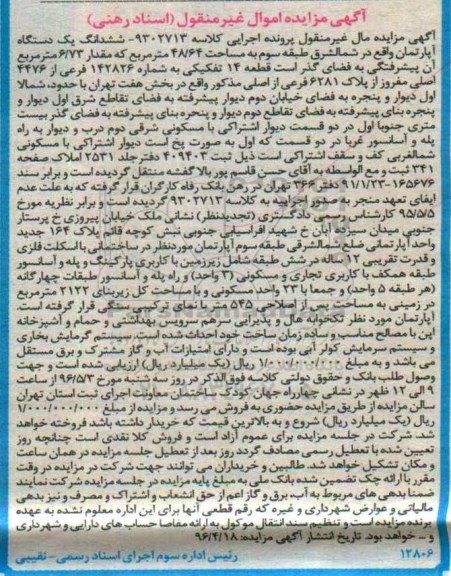 آگهی مزایده اموال غیرمنقول (اسناد رهنی)
آگهی مزایده مال غیرمنقول پرونده اجرایی کلاسه ۹۳۰۲۷۱۳- ششدانگ یک دستگاه
آپارتمان واقع در شمالشرق طبقه سوم به مساحت ۴۸/۶۴ مترمربع که مقدار ۶/۷۳ مترمربع
آن پیشرفتگی به فضای گذر است قطعه ۱۴ تفکیکی به شماره ۱۴۲۸۲۶ فرعی از ۴۴۷۶
اصلی مفروز از پلاک ۶۲۸۱ فرعی از اصلی مذکور واقع در بخش هفت تهران با حدود، شمالا
اول دیوار و پنجره به فضای خیابان دوم دیوار پیشرفته به فضای تقاطع شرق اول دیوار و
پنجره بنای پیشرفته به فضای تقاطع دوم دیوار و پنجره بنای پیشرفته به فضای گذر بیست
متری جنوبا اول در دو قسمت دیوار اشتراکی با مسکونی شرقی دوم درب و دیوار به راه
پله و آسانسور غربا در دو قسمت که اول به صورت پخ است دیوار اشتراکی با مسکونی
شمالغربی کف و سقف اشتراکی است ذیل ثبت ۴۰۹۴۰۳ دفتر جلد ۲۵۳۱ املاک صفحه
۳۴۱ ثبت و مع الواسطه به آقای حسن قاسم پور بالا گفشه منتقل گردیده است و برابر سند
۱۶۵۶۷۶-۹۱/۱/۲۳ دفتر ۳۶۶ تهران در رهن بانک رفاه کارگران قرار گرفته که به علت عدم
ایفای تعهد منجر به صدور اجراییه به کلاسه ۹۳۰۲۷۱۳ گردیده است و برابر نظریه مورخ
۹۵/۵/۵ کارشناس رسمی دادگستری (تجدیدنظر) نشانی ملک خیابان پیروزی خ پرستار
جنوبی میدان سیزده آبان خ شهید افراسیابی جنوبی نبش کوچه قائن پلاک ۱۶۴ جدید
واحد آپارتمانی ضلع شمالشرقی طبقه سوم آپارتمان موردنظر در ساختمانی با اسکلت فلزی
و قدرت تقریبی ۱۲ ساله در شش طبقه شامل زیرزمین با کاربری پارکینگ و پله و آسانسور
طبقه همکف با کاربری تجاری و مسکونی (۳ واحد) و راه پله و آسانسور طبقات چهارگانه
(هر طبقه ۵ واحد) و جمعا با ۲۳ واحد مسکونی و با مساحت کل زیربنای ۲۱۲۲ مترمربع
در زمینی به مساحت پس از اصلاحی ۵۴۵ متر با نمای ترکیبی سنگی قرار گرفته است.
آپارتمان مورد نظر تکخوابه هال و پذیرایی سرهم سرویس بهداشتی و حمام و آشپزخانه
اپن با مصالح مناسب و ساده زمان ساخت خود احداث شده است. سیستم گرمایش بخاری
و سیستم سرمایش کولر آبی بوده است و دارای امتیازات آب و گاز مشترک و برق مستقل
می باشد و به مبلغ ۱/۰۰۰/۰۰۰/۰۰۰ ریال (یک میلیارد ریال) ارزیابی شده است و جهت
وصول طلب بانک و حقوق دولتی کلاسه فوق الذکر در روز سه شنبه مورخ ۹۶/۵/۳ از ساعت
۹ الی ۱۲ ظهر در نشانی چهارراه جهان کودک ساختمان معاونت اجرای ثبت استان تهران
سالن مزایده از طریق مزایده حضوری به فروش می رسد و مزایده از مبلغ ۱/۰۰۰/۰۰۰/۰۰۰
ریال (یک میلیارد ریال) شروع و به بالاترین قیمت که خریدار داشته باشد فروخته خواهد
شد. شرکت در جلسه مزایده برای عموم آزاد است و فروش کلا نقدی است چنانچه روز
تعیین شده با تعطیل رسمی مصادف گردد روز بعد از تعطیل جلسه مزایده در همان ساعت
و مکان تشکیل خواهد شد. طالبین و خریداران می توانند جهت شرکت در مزایده در وقت
مقرر با ارائه چک تضمین شده بانک ملی به مبلغ پایه مزایده در جلسه مزایده شرکت نمایند
ضمنا بدهی های مربوط به آب، برق و گاز اعم از حق انشعاب و اشتراک و مصرف و نیز بدهی
مالیاتی و عوارض شهرداری و غیره که رقم قطعی آنها برای این اداره معلوم نشده به عهده
برنده مزایده است و تنظیم سند انتقال موکول به ارائه مفاصا حساب های دارایی و شهرداری
و ... خواهد بود. تاریخ انتشار آگهی مزایده: ۹۶/۴/۱۸
۱۲۸۰۶ رئیس اداره سوم اجرای اسناد رسمی- نقیبی